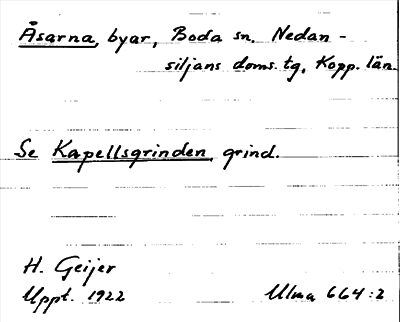 Åsarna, byar, Boda sn. Nedan-
siljans doms. tg, Kopp. län.
Se Kapellsgrinden, grind.
H. Geijer
Uppt. 1922 Ulma 664:2